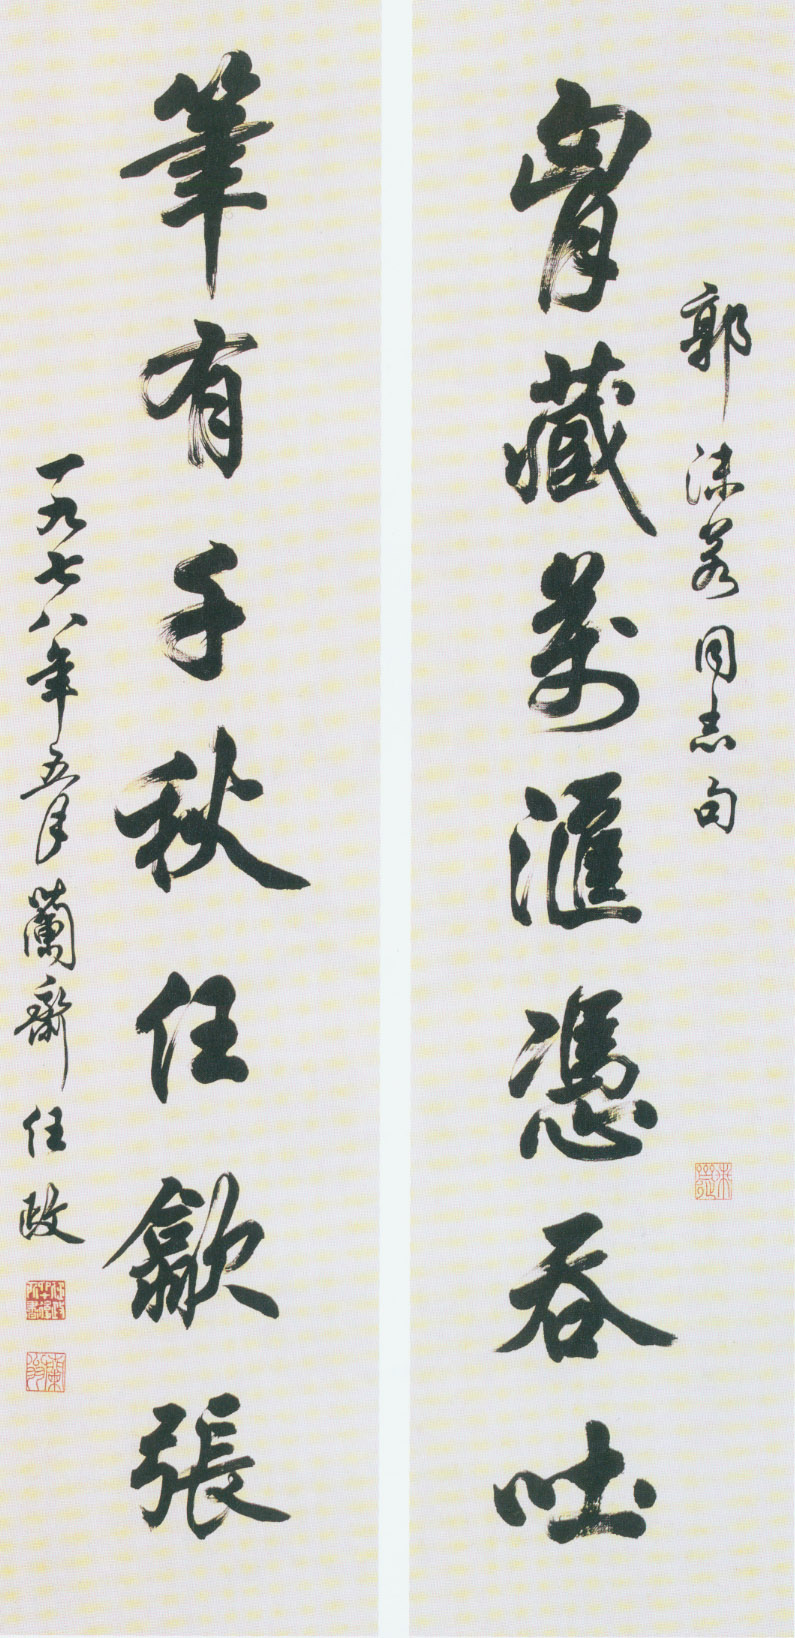 郭沫若同志句
胷藏萬滙憑吞吐
筆有千秋任歙張
一九七八年五月蘭齋任政